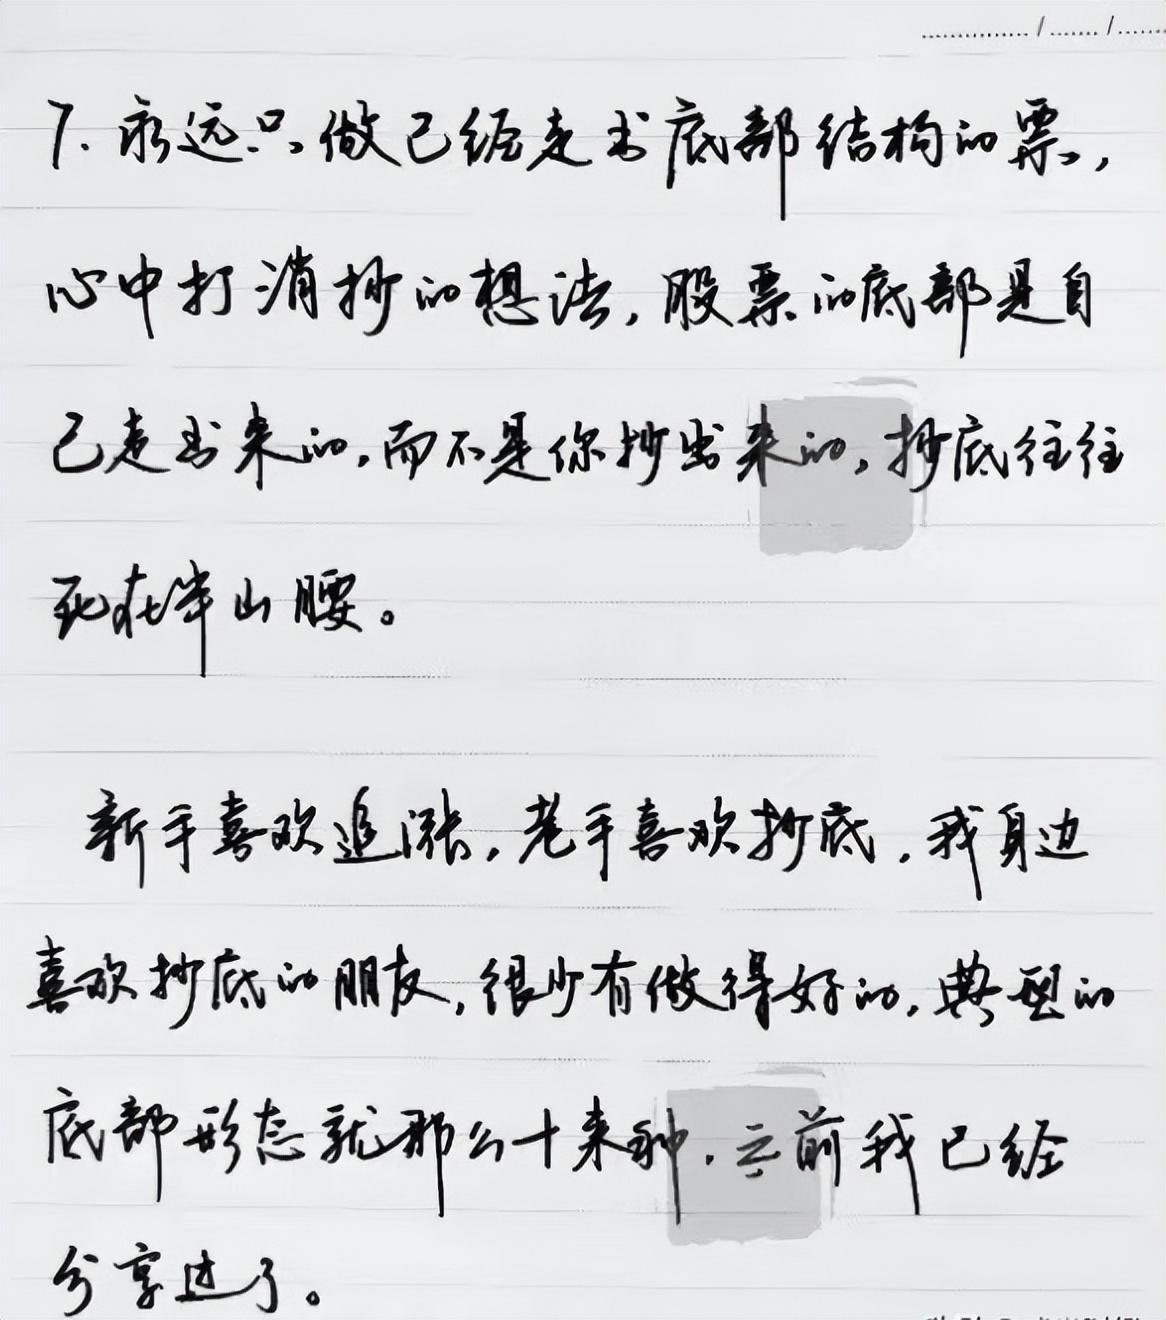 7.永远只做已经走出底部结构的票,
心中打消抄的想法,股票的底部是自
己走出来的,而不是你抄出来的,抄底往往
死在半山腰。
新手喜欢追涨,老手喜欢抄底.我身边
喜欢抄底的朋友,很少有做得好的,典型的
底部形态就那么十来种.之前我已经
分享过了。